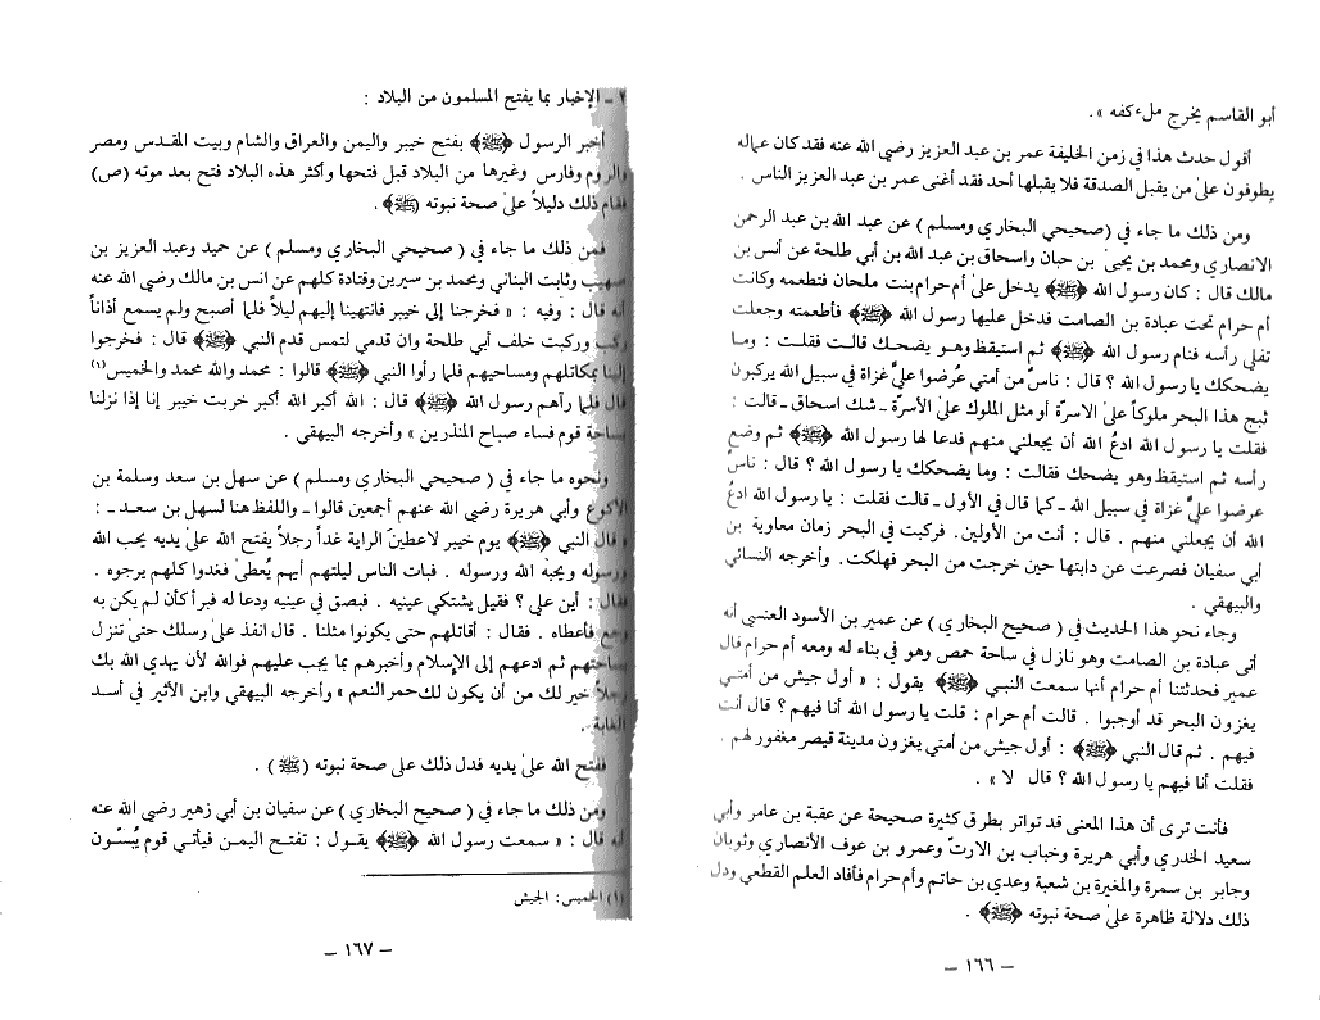 أبو القاسم يخرج ملء كفه » .
أقول حدث هذا في زمن الخليفة عمر بن عبد العزيز رضي الله عنه فقد كان عماله
يطوفون على من يقبل الصدقة فلا يقبلها أحد فقد أغنى عمر بن عبد العزيز الناس .
ومن ذلك ما جاء في (صحيحي البخاري ومسلم ) عن عبد الله بن عبد الرحمن
الانصاري ومحمد بن يحيىٰ بن حبان واسحاق بن عبد الله بن أبي طلحة عن أنس بن
مالك قال : كان رسول الله ﴿ﷺ﴾ يدخل علىٰ أم حرام بنت ملحان فتطعمه وكانت
أم حرام تحت عبادة بن الصامت فدخل عليها رسول الله ﴿ﷺ﴾ فأطعمته وجعلت
تفلي رأسه فنام رسول الله ﴿ﷺ﴾ ثم استيقظ وهو يضحك قالت فقلت : وما
يضحكك يا رسول الله ؟ قال : ناسٌ من أمتي عُرضوا عليَّ غزاة في سبيل الله يركبون
ثبج هذا البحر ملوكاً علىٰ الاسرّة أو مثل الملوك علىٰ الأسرّة ـ شك اسحاق ـ قالت :
فقلت يا رسول الله ادعُ الله أن يجعلني منهم فدعا لها رسول الله ﴿ﷺ﴾ ثم وضع
رأسه ثم استيقظ وهو يضحك فقالت : وما يضحكك يا رسول الله ؟ قال : ناسٌ
عرضوا عليَّ غزاة في سبيل الله ـ كما قال في الأول ـ قالت فقلت : يا رسول الله ادعُ
الله أن يجعلني منهم . قال : أنت من الأولين. فركبت في البحر زمان معاوية بن
أبي سفيان فصرعت عن دابتها حين خرجت من البحر فهلكت . وأخرجه النسائي
والبيهقي .
وجاء نحو هذا الحديث في ( صحيح البخاري ) عن عمير بن الأسود العنسي أنه
أتى عبادة بن الصامت وهو نازل في ساحة حمص وهو في بناء له ومعه أم حرام قال
عمير فحدثتنا أم حرام أنها سمعت النبي ﴿ﷺ﴾ يقول : « أول جيش من أمتي
يغزون البحر قد أوجبوا . قالت أم حرام : قلت يا رسول الله أنا فيهم ؟ قال أنت
فيهم . ثم قال النبي ﴿ﷺ﴾ : أول جيش من أمتي يغزون مدينة قيصر مغفور لهم .
فقلت أنا فيهم يا رسول الله ؟ قال لا » .
فأنت ترى أن هذا المعنى قد تواتر بطرق كثيرة صحيحة عن عقبة بن عامر وأبي
سعيد الخدري وأبي هريرة وخباب بن الارت وعمرو بن عوف الأنصاري وثوبان
وجابر بن سمرة والمغيرة بن شعبة وعدي بن حاتم وأم حرام فأفاد العلم القطعي ودل
ذلك دلالة ظاهرة علىٰ صحة نبوته ﴿ﷺ﴾ .
ـ ١٦٦ ـ
٢ ـ الإخبار بما يفتح المسلمون من البلاد :
أخبر الرسول ﴿ﷺ﴾ بفتح خيبر واليمن والعراق والشام وبيت المقدس ومصر
والروم وفارس وغيرها من البلاد قبل فتحها وأكثر هذه البلاد فتح بعد موته (ص)
فقام ذلك دليلاً علىٰ صحة نبوته ﴿ﷺ﴾ .
فمن ذلك ما جاء في ( صحيحي البخاري ومسلم ) عن حميد وعبد العزيز بن
صهيب وثابت البناني ومحمد بن سيرين وقتادة كلهم عن انس بن مالك رضي الله عنه
أنه قال : وفيه : « فخرجنا إلى خيبر فانتهينا إليهم ليلاً فلما أصبح ولم يسمع أذاناً
ركب وركبت خلف أبي طلحة وان قدمي لتمس قدم النبي ﴿ﷺ﴾ قال : فخرجوا
إلينا بمكاتلهم ومساحيهم فلما رأوا النبي ﴿ﷺ﴾ قالوا : محمد والله محمد والخميس(١)
قال فلما رآهم رسول الله ﴿ﷺ﴾ قال : الله أكبر الله أكبر خربت خيبر إنا إذا نزلنا
بساحة قوم فساء صباح المنذرين » وأخرجه البيهقي .
ونحوه ما جاء في ( صحيحي البخاري ومسلم ) عن سهل بن سعد وسلمة بن
الأكوع وأبي هريرة رضي الله عنهم أجمعين قالوا ـ واللفظ هنا لسهل بن سعد ـ :
« قال النبي ﴿ﷺ﴾ يوم خيبر لاعطين الراية غداً رجلاً يفتح الله علىٰ يديه يحب الله
ورسوله ويحبه الله ورسوله . فبات الناس ليلتهم أيهم يُعطىٰ فغدوا كلهم يرجوه .
فقال : أين علي ؟ فقيل يشتكي عينيه . فبصق في عينيه ودعا له فبرأ كأن لم يكن به
وجع فأعطاه . فقال : أقاتلهم حتى يكونوا مثلنا . قال انفذ علىٰ رسلك حتىٰ تنزل
بساحتهم ثم ادعهم إلى الإسلام وأخبرهم بما يجب عليهم فوالله لأن يهدي الله بك
رجلاً خير لك من أن يكون لك حمر النعم » وأخرجه البيهقي وابن الأثير في أسد
الغابة .
ففتح الله علىٰ يديه فدل ذلك على صحة نبوته (ﷺ) .
ومن ذلك ما جاء في ( صحيح البخاري ) عن سفيان بن أبي زهير رضي الله عنه
أنه قال : « سمعت رسول الله ﴿ﷺ﴾ يقول : تفتح اليمن فيأتي قوم يُبسّون
(١) الخميس: الجيش
ـ ١٦٧ ـ